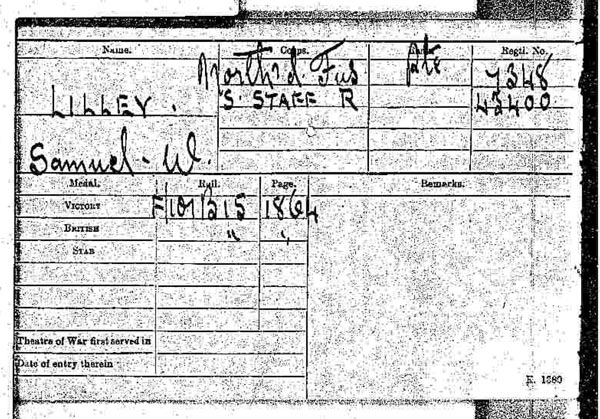 Name. Corps. Rank. Regtl. No.
North'd Fus Pte 7348
LILLEY. S. STAFF R 43400
Samuel W.
Medal. Roll. Page. Remarks.
VICTORY 1864
BRITISH " "
STAR
Theatre of War first served in
Date of entry therein
K. 1380